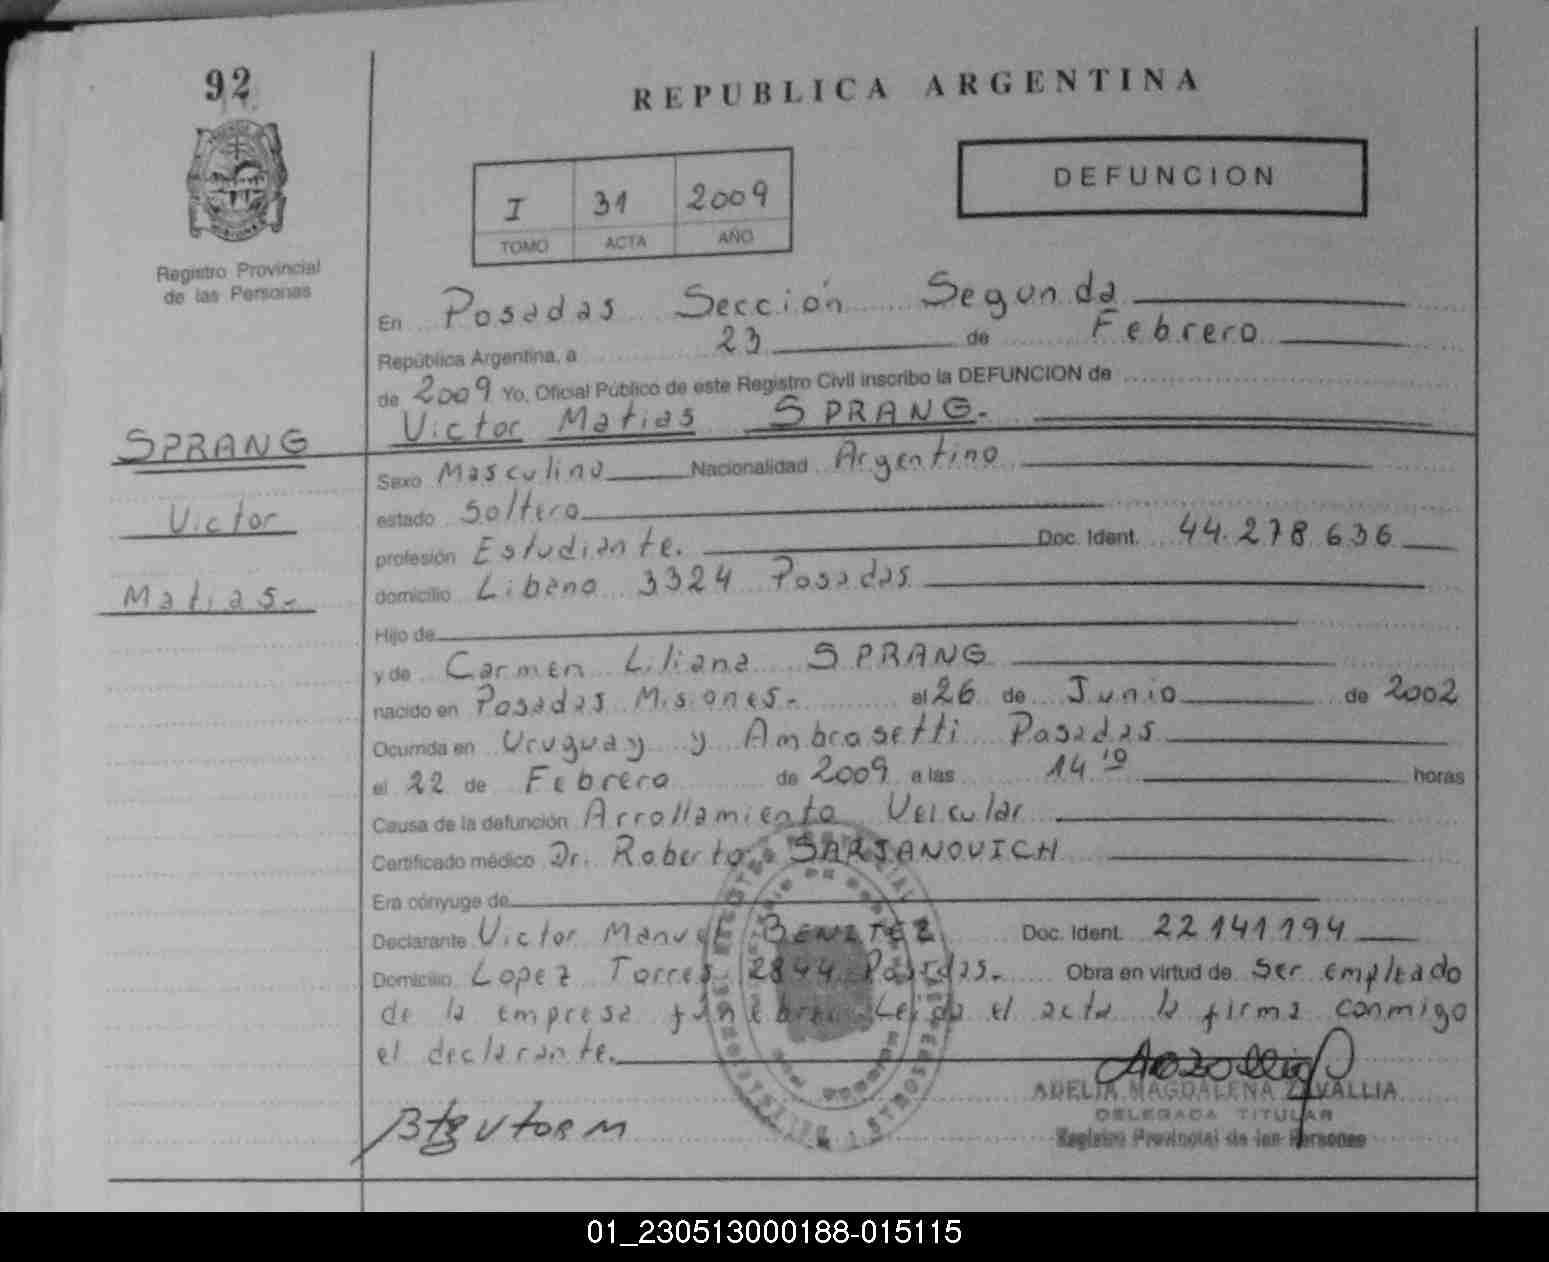 92
REPUBLICA ARGENTINA
DEFUNCION
I 31 2009
TOMO ACTA AÑO
Registro Provincial
de las Personas
En Posadas Sección Segunda
República Argentina, a 23 de Febrero
de 2009 Yo, Oficial Público de este Registro Civil inscribo la DEFUNCION de
Victor Matias SPRANG.
SPRANG
Victor
Matias.-
Sexo Masculino Nacionalidad Argentino
estado Soltero
profesión Estudiante. Doc. Ident. 44.278.636
domicilio Libano 3324 Posadas
Hijo de
y de Carmen Liliana SPRANG
nacido en Posadas Misiones.- el 26 de Junio de 2002
Ocurrida en Uruguay y Ambrosetti Posadas
el 22 de Febrero de 2009 a las 14 10 horas
Causa de la defunción Arrollamiento Veicular
Certificado médico Dr. Roberto SARJANOVICH
Era cónyuge de
Declarante Victor Manuel BENITEZ Doc. Ident. 22141194
Domicilio Lopez Torres 2844 Posadas.- Obra en virtud de Ser empleado
de la empresa funebre. Leida el acta la firma conmigo
el declarante.
ADELIA MAGDALENA ZAVALLIA
DELEGADA TITULAR
Registro Provincial de las Personas
01_230513000188-015115